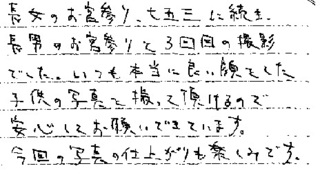 長女のお宮参り、七五三に続き、
長男のお宮参りと3回目の撮影
でした。いつも本当に良い顔をした
子供の写真を撮って頂けるので
安心してお願いできています。
今回の写真の仕上がりも楽しみです。